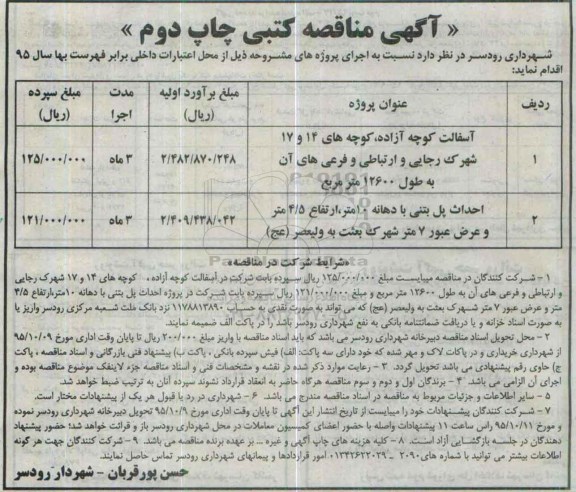 « آگهی مناقصه کتبی چاپ دوم »
شهرداری رودسر در نظر دارد نسبت به اجرای پروژه های مشروحه ذیل از محل اعتبارات داخلی برابر فهرست بها سال ۹۵
اقدام نماید:
ردیف عنوان پروژه مبلغ برآورد اولیه (ریال) مدت اجرا مبلغ سپرده (ریال)
۱ آسفالت کوچه آزاده،کوچه های ۱۴ و ۱۷ شهرک رجایی و ارتباطی و فرعی های آن به طول ۱۲۶۰۰ متر مربع ۲/۴۸۲/۸۷۰/۲۴۸ ۳ ماه ۱۲۵/۰۰۰/۰۰۰
۲ احداث پل بتنی با دهانه ۱۰متر،ارتفاع ۴/۵ متر و عرض عبور ۷ متر شهرک بعثت به ولیعصر (عج) ۲/۴۰۹/۴۳۸/۰۴۲ ۳ ماه ۱۲۱/۰۰۰/۰۰۰
«شرایط شرکت در مناقصه»
۱ – شرکت کنندگان در مناقصه میبایست مبلغ ۱۲۵/۰۰۰/۰۰۰ ریال سپرده بابت شرکت در آسفالت کوچه آزاده ، کوچه های ۱۴ و ۱۷ شهرک رجایی
و ارتباطی و فرعی های آن به طول ۱۲۶۰۰ متر مربع و مبلغ ۱۲۱/۰۰۰/۰۰۰ ریال سپرده بابت شرکت در پروژه احداث پل بتنی با دهانه ۱۰متر،ارتفاع ۴/۵
متر و عرض عبور ۷ متر شهرک بعثت به ولیعصر (عج) که می تواند به صورت نقدی به حساب ۱۱۷۸۸۱۳۸۹۰ نزد بانک ملت شعبه مرکزی رودسر واریز یا
به صورت اسناد خزانه و یا دریافت ضمانتنامه بانکی به نفع شهرداری رودسر باشد را در پاکت الف ضمیمه نمایند.
۲ – محل تحویل اسناد مناقصه دبیرخانه شهرداری رودسر می باشد که باید اسناد مناقصه با واریز مبلغ ۲۰۰/۰۰۰ ریال تا پایان وقت اداری مورخ ۹۵/۱۰/۰۹
از شهرداری خریداری و در پاکات لاک و مهر شده که خود دارای سه پاکت: الف) فیش سپرده بانکی ، پاکت ب) پیشنهاد فنی بازرگانی و اسناد مناقصه ، پاکت
ج) حاوی رقم پیشنهادی می باشد تحویل گردد. ۳ – رعایت موارد ذکر شده در نقشه و مشخصات فنی و اسناد مناقصه جزء لاینفک موضوع مناقصه بوده و
اجرای آن الزامی می باشد. ۴ – برندگان اول و دوم و سوم مناقصه هرگاه حاضر به انعقاد قرارداد نشوند سپرده آنان به ترتیب ضبط خواهد شد.
۵ – سایر اطلاعات و جزئیات مربوط به مناقصه در اسناد مناقصه مندرج می باشد. ۶ – شهرداری در رد یا قبول هر یک از پیشنهادات مختار است.
۷ – شرکت کنندگان پیشنهادات خود را میبایست از تاریخ انتشار این آگهی تا پایان وقت اداری مورخ ۹۵/۱۰/۹ تحویل دبیرخانه شهرداری رودسر نموده
و مورخ ۹۵/۱۰/۱۱ راس ساعت ۱۱ پیشنهادات واصله با حضور اعضای کمیسیون معاملات در محل شهرداری رودسر باز و قرائت خواهد شد؛ حضور پیشنهاد
دهندگان در جلسه بازگشایی آزاد است. ۸ – کلیه هزینه های چاپ آگهی و غیره ... بر عهده برنده مناقصه می باشد. ۹ – شرکت کنندگان جهت هر گونه
اطلاعات بیشتر می توانید با شماره های ۲۰۹۰ – ۰۱۳۴۲۶۲۲۰۳۹ امور قراردادها و پیمانهای شهرداری رودسر تماس حاصل نمایند.
حسن پورقربان – شهردار رودسر